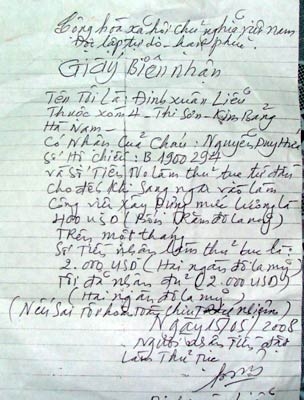 Cộng hòa xã hội chủ nghĩa việt nam
Độc lập tự do hạnh phúc
Giấy Biên nhận
Tên Tôi Là Đinh xuân Liêu
Thuộc xóm 4 - Thi Sơn - Kim Bảng
Hà Nam -
Có Nhận Của Cháu: Nguyễn Duy Huê
Số Hộ chiếu: B1900294
và Số Tiền No làm thủ tục từ đầu
cho đến khi Sang nga vào làm
Công việc xây Dựng mức Lương là
400 USD (Bốn Trăm đô la mỹ)
Trên một tháng
Số Tiền nhận làm thủ tục là
2.000 USD (Hai ngàn đô la mỹ)
Tôi đã nhận đủ (2.000 USD)
(Hai ngàn đô la mỹ)
(Nếu Sai Tôi hoàn Toàn chịu Trách nhiệm)
Ngày 15/05/2008
Người nhận Tiền để
Làm Thủ Tục